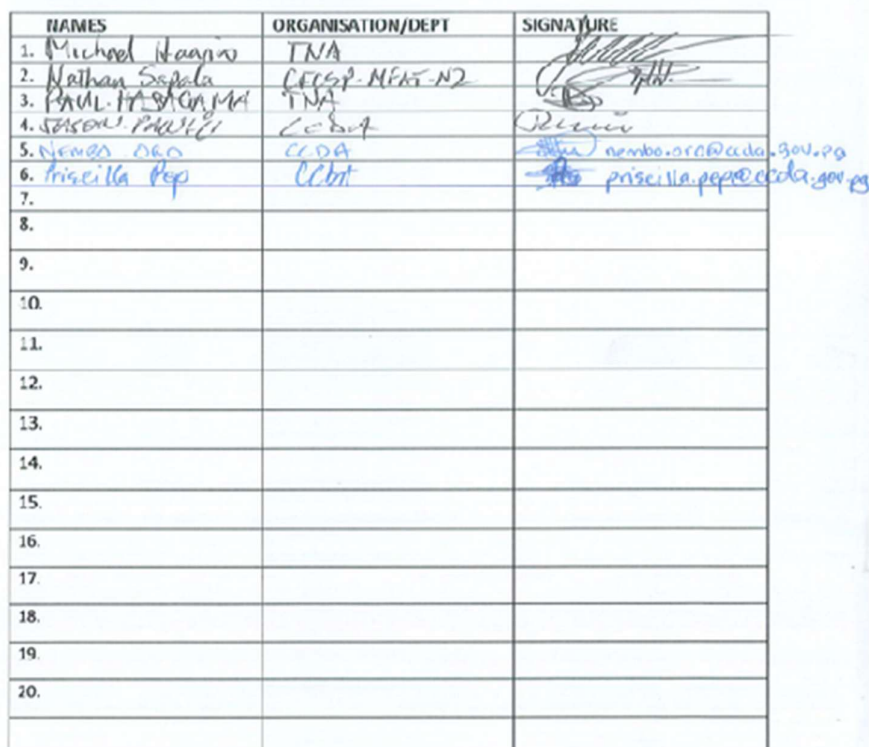 NAMES ORGANISATION/DEPT SIGNATURE
1. Michael TNA
2. Nathan Sapala CFCSP-MFAT-NZ
3. PAUL HABAGAMA TNA
4. JASON CCDA
5. NEMBO ORO CCDA nembo.oro@ccda.gov.pg
6. Priscilla Pep CCDA priscilla.pepe@ccda.gov.pg
7.
8.
9.
10.
11.
12.
13.
14.
15.
16.
17.
18.
19.
20.